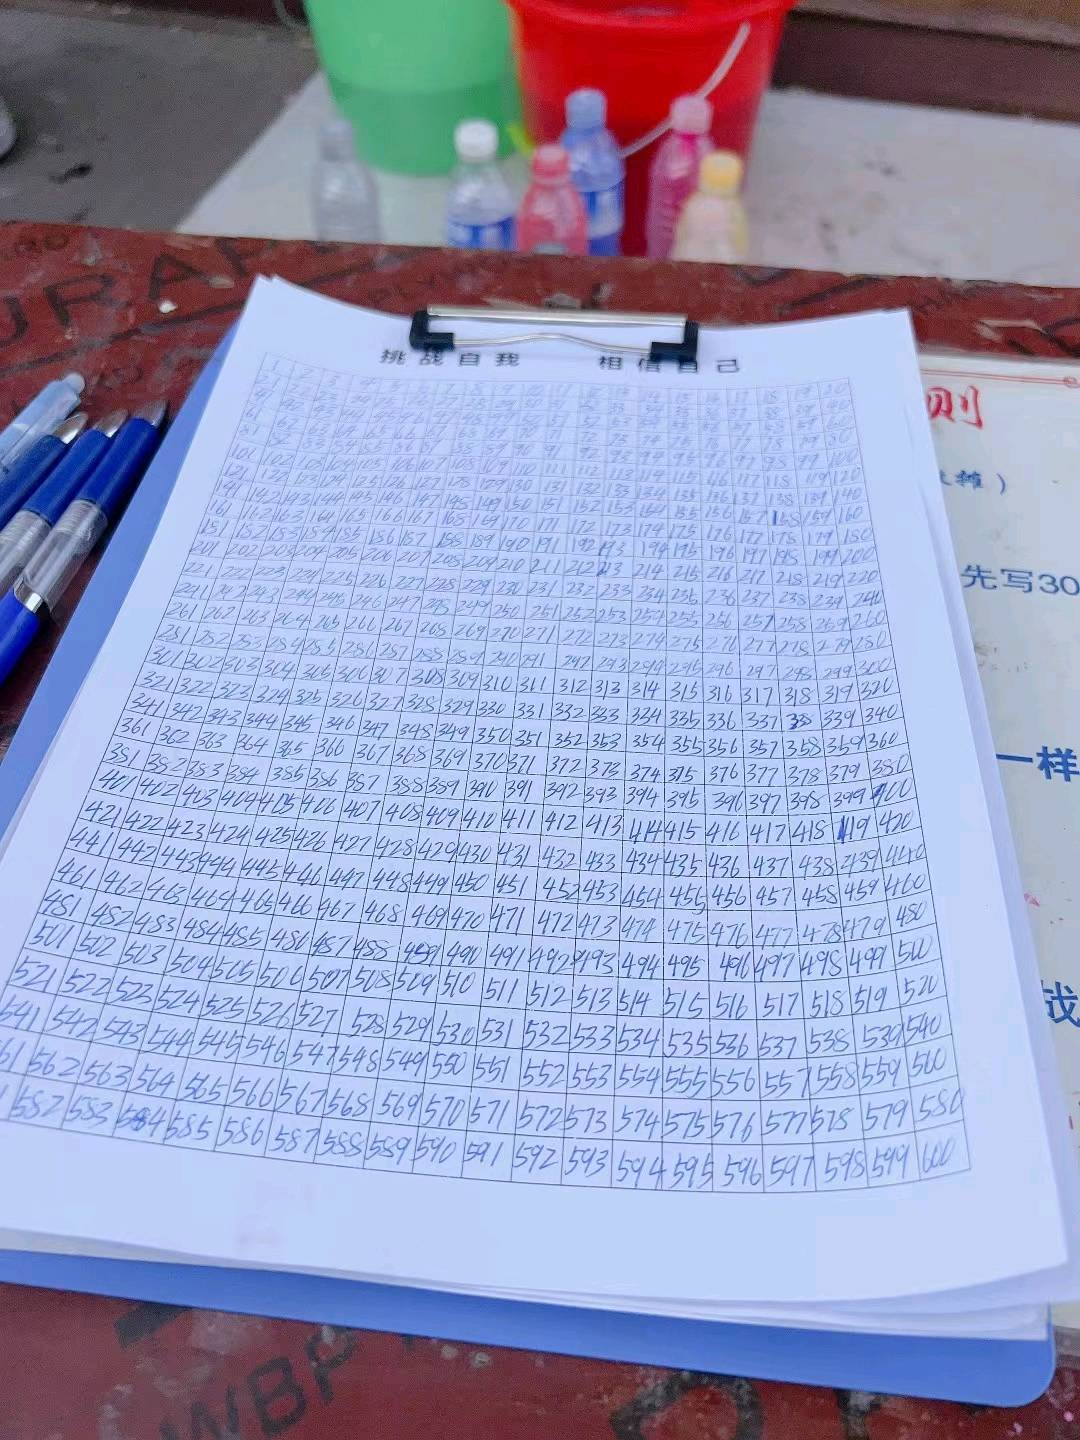 挑战自我 相信自己
1 2 3 4 5 6 7 8 9 10 11 12 13 14 15 16 17 18 19 20
101 102 103 104 105 106 107 108 109 110 111 112 113 114 115 116 117 118 119 120
141 142 143 144 145 146 147 148 149 150 151 152 153 154 155 156 157 158 159 160
161 162 163 164 165 166 167 168 169 170 171 172 173 174 175 176 177 178 179 180
181 182 183 184 185 186 187 188 189 190 191 192 193 194 195 196 197 198 199 200
201 202 203 204 205 206 207 208 209 210 211 212 213 214 215 216 217 218 219 220
221 222 223 224 225 226 227 228 229 230 231 232 233 234 235 236 237 238 239 240
241 242 243 244 245 246 247 248 249 250 251 252 253 254 255 256 257 258 259 260
261 262 263 264 265 266 267 268 269 270 271 272 273 274 275 276 277 278 279 280
281 282 283 284 285 286 287 288 289 290 291 292 293 294 295 296 297 298 299 300
301 302 303 304 305 306 307 308 309 310 311 312 313 314 315 316 317 318 319 320
321 322 323 324 325 326 327 328 329 330 331 332 333 334 335 336 337 338 339 340
341 342 343 344 345 346 347 348 349 350 351 352 353 354 355 356 357 358 359 360
361 362 363 364 365 366 367 368 369 370 371 372 373 374 375 376 377 378 379 380
381 382 383 384 385 386 387 388 389 390 391 392 393 394 395 396 397 398 399 400
401 402 403 404 405 406 407 408 409 410 411 412 413 414 415 416 417 418 419 420
421 422 423 424 425 426 427 428 429 430 431 432 433 434 435 436 437 438 439 440
441 442 443 444 445 446 447 448 449 450 451 452 453 454 455 456 457 458 459 460
461 462 463 464 465 466 467 468 469 470 471 472 473 474 475 476 477 478 479 480
481 482 483 484 485 486 487 488 489 490 491 492 493 494 495 496 497 498 499 500
501 502 503 504 505 506 507 508 509 510 511 512 513 514 515 516 517 518 519 520
521 522 523 524 525 526 527 528 529 530 531 532 533 534 535 536 537 538 539 540
541 542 543 544 545 546 547 548 549 550 551 552 553 554 555 556 557 558 559 560
61 562 563 564 565 566 567 568 569 570 571 572 573 574 575 576 577 578 579 580
582 583 584 585 586 587 588 589 590 591 592 593 594 595 596 597 598 599 600
则
摊）
先写30
一样
战